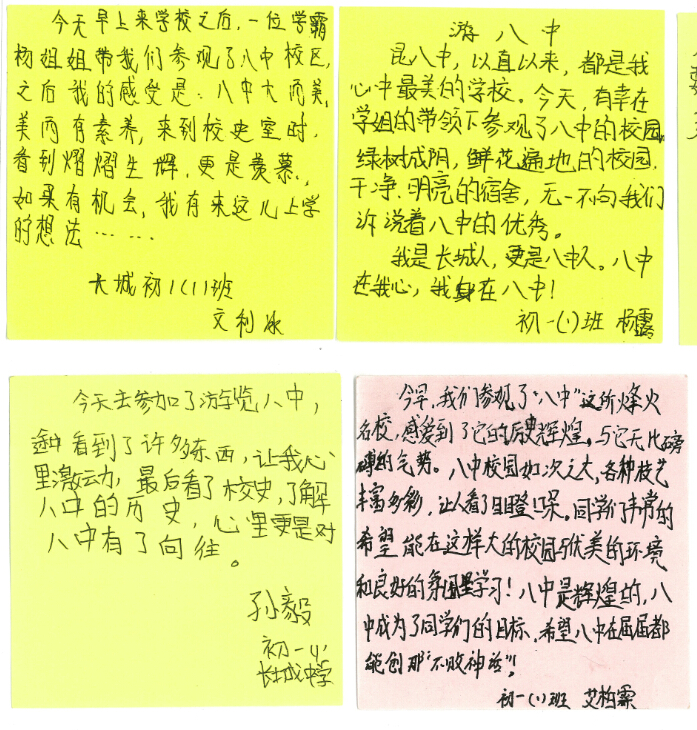 今天早上来学校之后，一位学霸
杨姐姐带我们参观了八中校区，
之后我的感受是：八中大而美，
美而有素养，来到校史室时，
看到熠熠生辉，更是羡慕，
如果有机会，我有来这儿上学
的想法……
长城初1(1)班
文利冰
游八中
昆八中，以直以来，都是我
心中最美的学校。今天，有幸在
学姐的带领下参观了八中的校园。
绿树成阴，鲜花遍地的校园，
干净、明亮的宿舍，无一不向我们
诉说着八中的优秀。
我是长城人，更是八中人。八中
在我心，我身在八中！
初一(1)班 杨露
今天去参加了游览八中，
途中看到了许多东西，让我心
里激动，最后看了校史，了解
八中的历史，心里更是对
八中有了向往。
孙毅
初一(1)
长城中学
今早，我们参观了“八中”这所烽火
名校，感受到了它的历史辉煌。与它无比磅
礴的气势。八中校园如次之大，各种技艺
丰富多彩，让人看了目瞪口呆。同学们非常的
希望能在这样大的校园与优美的环境
和良好的氛围里学习！八中是辉煌的，八
中成为了同学们的目标，希望八中在届届都
能创那“不败神话”！
初一(1)班 艾柏霖